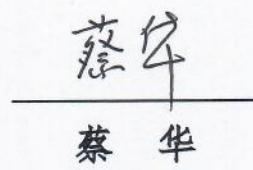 蔡华
蔡 华